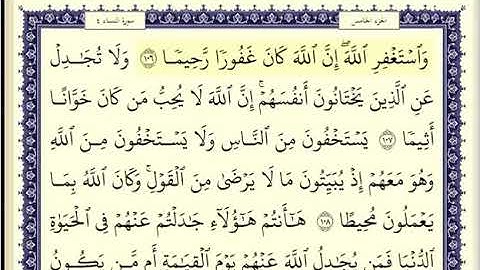 الجزء الخامس سورة النساء ٤
وَٱسْتَغْفِرِ ٱللَّهَۖ إِنَّ ٱللَّهَ كَانَ غَفُورًا رَّحِيمًا ١٠٦ وَلَا تُجَٰدِلْ
عَنِ ٱلَّذِينَ يَخْتَانُونَ أَنفُسَهُمْۚ إِنَّ ٱللَّهَ لَا يُحِبُّ مَن كَانَ خَوَّانًا
أَثِيمًا ١٠٧ يَسْتَخْفُونَ مِنَ ٱلنَّاسِ وَلَا يَسْتَخْفُونَ مِنَ ٱللَّهِ
وَهُوَ مَعَهُمْ إِذْ يُبَيِّتُونَ مَا لَا يَرْضَىٰ مِنَ ٱلْقَوْلِۚ وَكَانَ ٱللَّهُ بِمَا
يَعْمَلُونَ مُحِيطًا ١٠٨ هَٰٓأَنتُمْ هَٰٓؤُلَآءِ جَٰدَلْتُمْ عَنْهُمْ فِى ٱلْحَيَوٰةِ
ٱلدُّنْيَا فَمَن يُجَٰدِلُ ٱللَّهَ عَنْهُمْ يَوْمَ ٱلْقِيَٰمَةِ أَم مَّن يَكُونُ